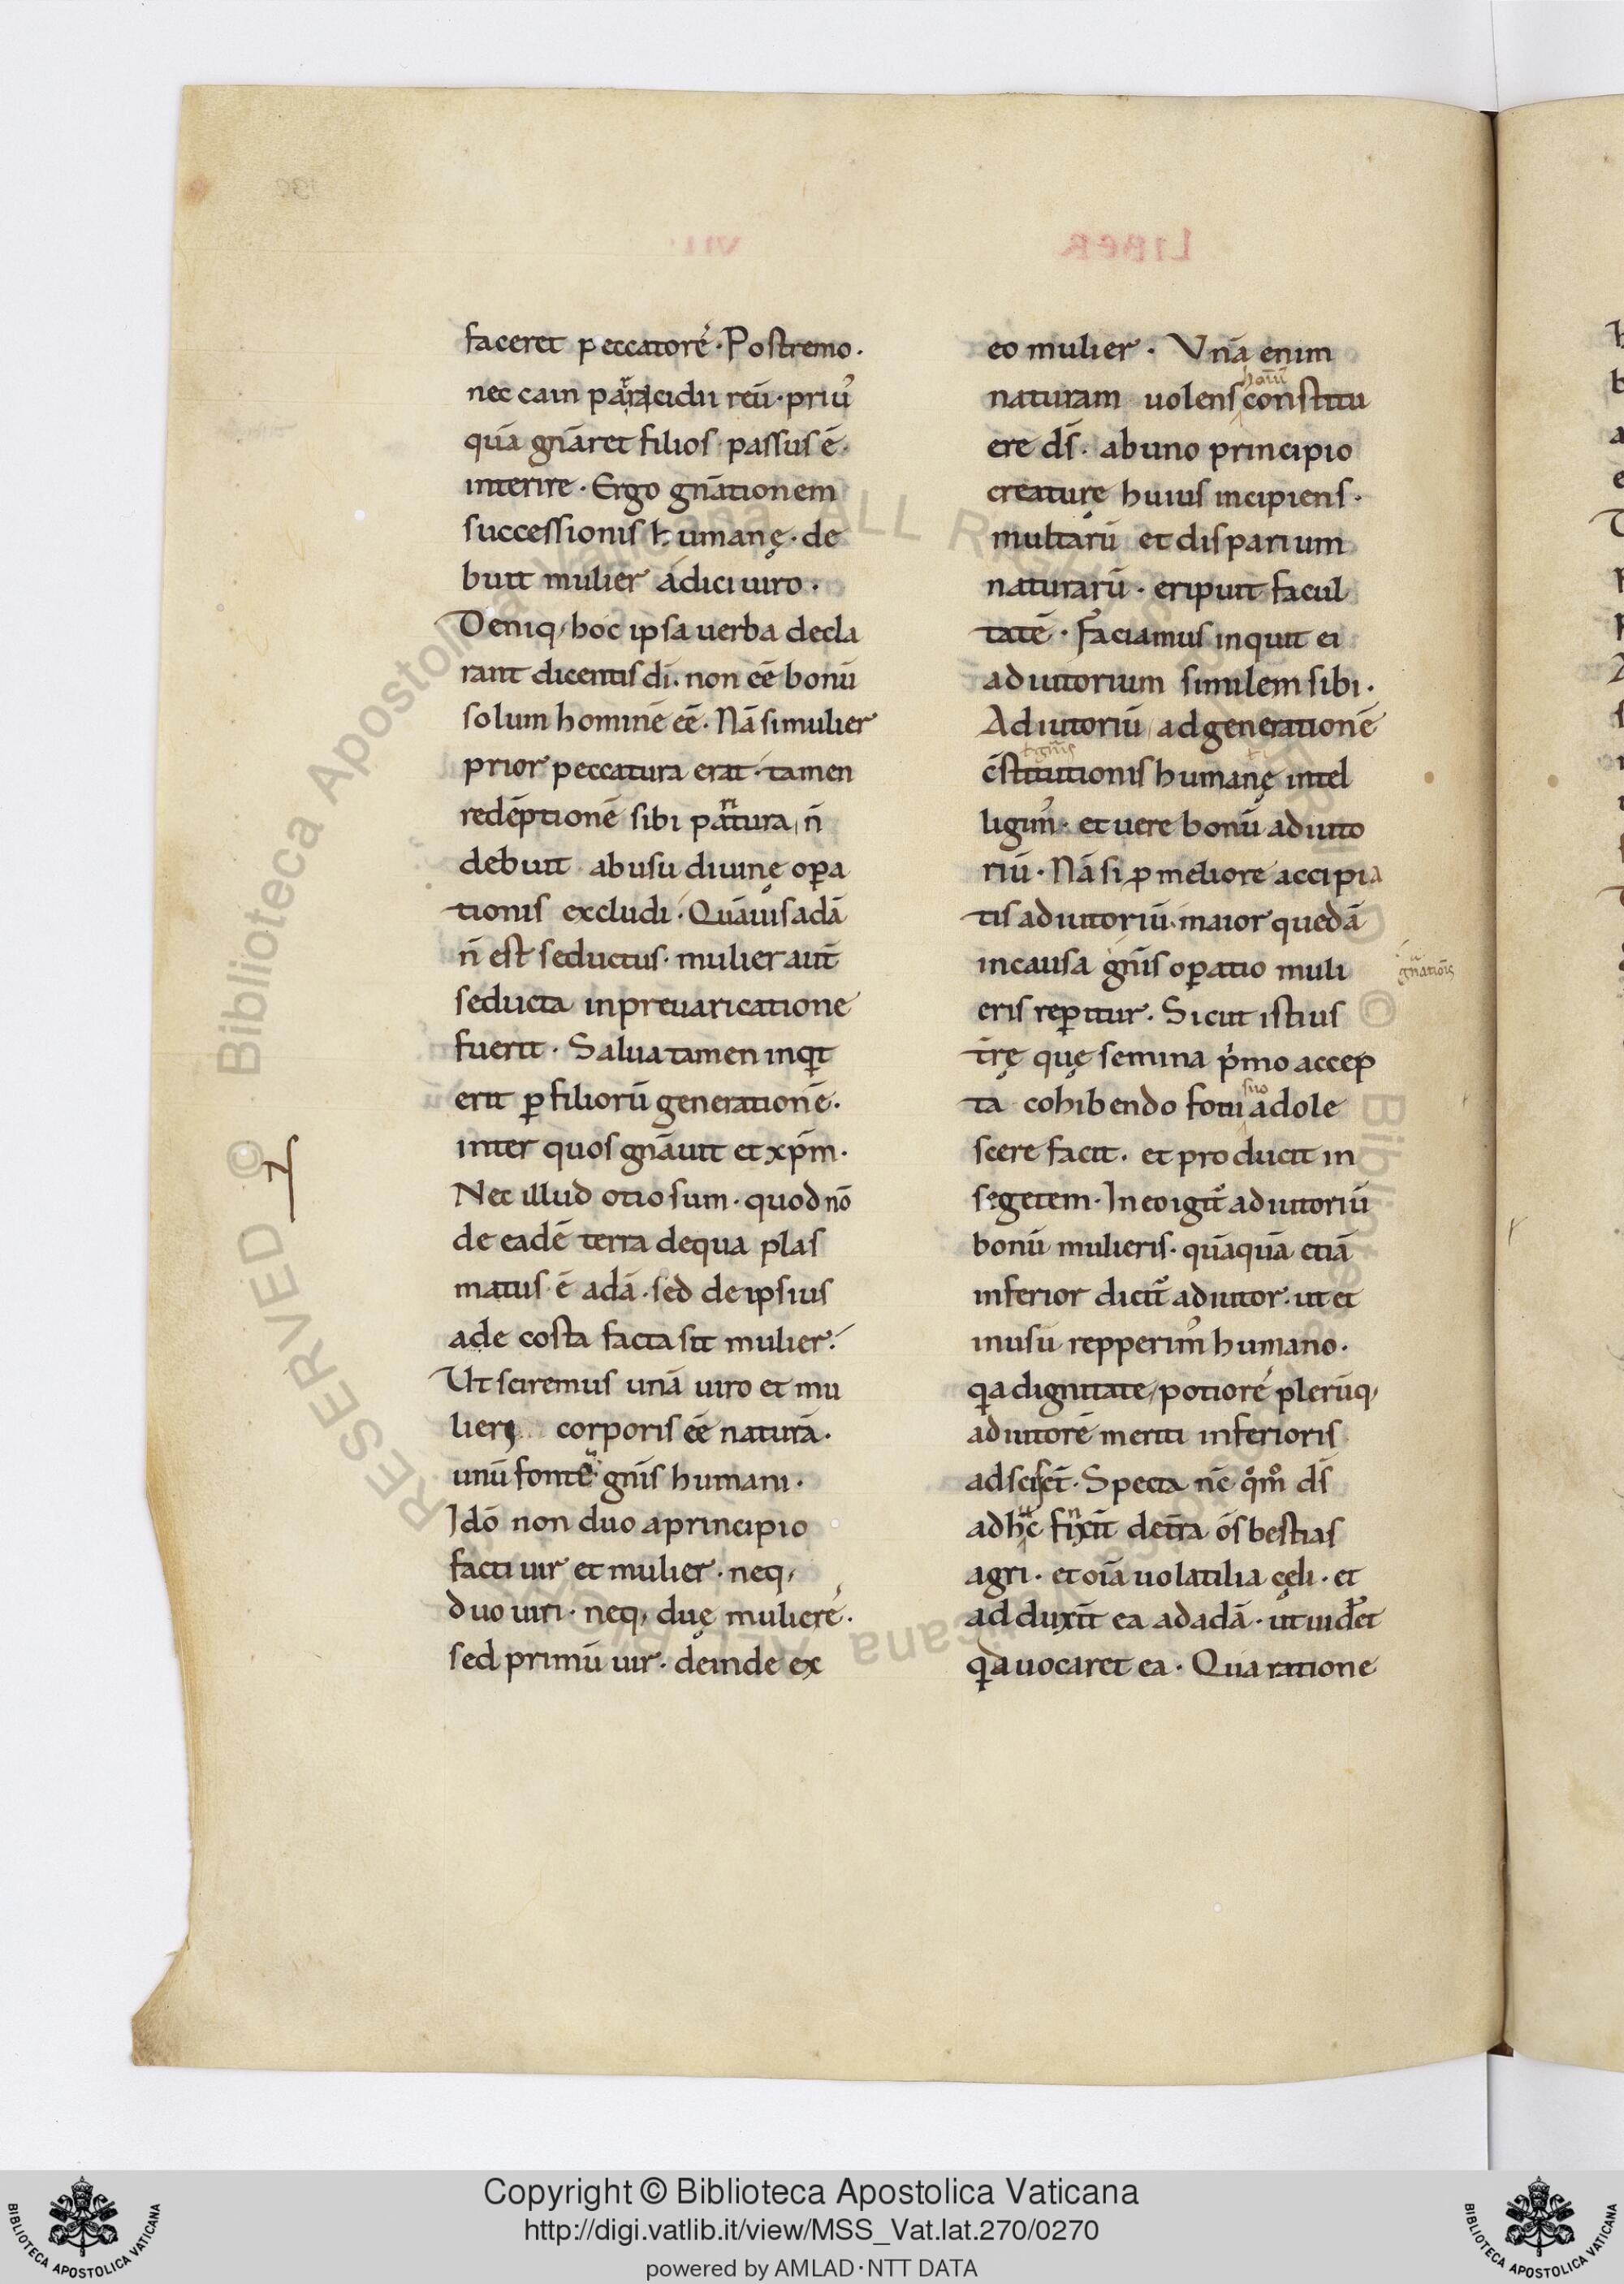 faceret peccatorē · Postremo ·
nec cain parricidii reū · priuˀ
quā gn̄aret filios passus ē ·
interire · Ergo gn̄ationem
successionis humanę · de
buit mulier adici uiro ·
Deniq; hoc ipsa uerba decla
rant dicentis dī · non eē bonū
solum hominē eē · Nā si mulier
prior peccatura erat · tamen
redēptionē sibi paritura n̄
debuit ab usu diuinę oꝑa
tionis excludi · Quāuis adā
n̄ est seductus · mulier aut̄
seducta in preuaricatione
fuerit · Salua tamen inqt
erit ꝑ filiorū generationē ·
inter quos gn̄auit et xp̄m ·
Nec illud otiosum · quod nō
de eadē terra de qua plas
matus ē adā · sed de ipsius
ade costa facta sit mulier ·
Ut sciremus unā uiro et mu
lieri corporis eē naturā ·
unū fontē gn̄is humani ·
Idō non duo a principio
facti uir et mulier · neq;
duo uiri · neq; duę mulierē ·
sed primū uir · deinde ex
LIBER
VII
eo mulier · Vnā enim
naturam uolens constitu
ere ds̄ · ab uno principio
creaturę huius incipiens ·
multarū et disparium
naturarū · eripuit facul
tatē · Faciamus inquit ei
adiutorium similem sibi ·
Adiutoriū ad generationē
c̄stitutionis humanę intel
ligimˀ · et uere bonū adiuto
riū · Nā si ꝓ meliore accipia
tis adiutoriū maior quedā
in causa gn̄is oꝑatio muli
eris reꝑitur · Sicut istius
tr̄ę quę semina pͥmo accep
ta cohibendo fotu suo adole
scere facit · et producit in
segetem · In eo igit̄ adiutoriū
bonū mulieris · quāquā etiā
inferior dicit̄ adiutor · ut et
in usu repperimˀ humano ·
qa dignitate potiorē plerūq;
adiutorē meriti inferioris
adsciscēt · Specta nē qm̊ ds̄
adhc finxit de tr̄a ōs bestias
agri · et oīa uolatilia cęli · et
adduxit ea ad adā · ut uidēt
qd uocaret ea · Qua ratione
gn̄atiōis